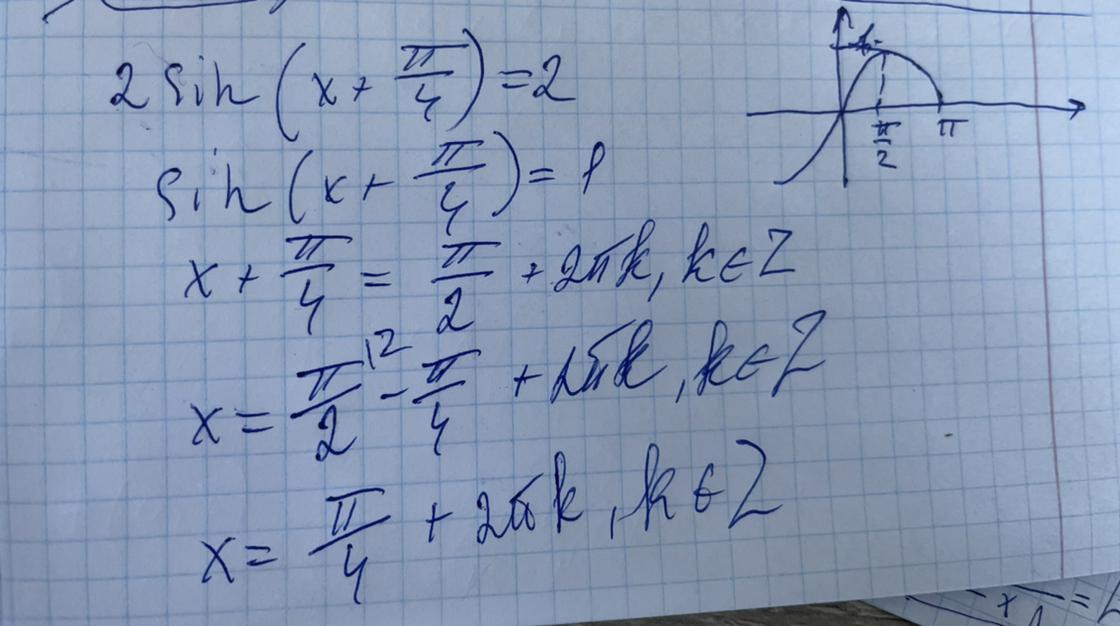 2 sin (x + π/4) = 2
sin (x + π/4) = 1
x + π/4 = π/2 + 2πk, k ∈ Z
x = π/2 |2 - π/4 + 2πk, k ∈ Z
x = π/4 + 2πk, k ∈ Z
1
π/2 π